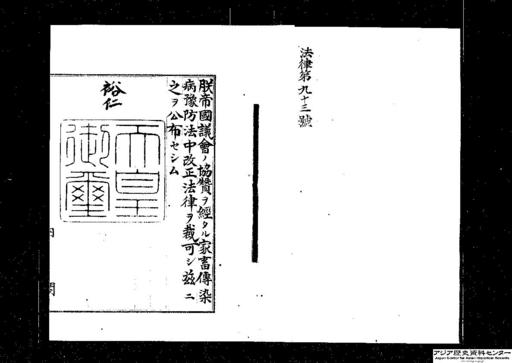 法律第九十三號
朕帝國議會ノ協贊ヲ經タル家畜傳染
病豫防法中改正法律ヲ裁可シ茲ニ
之ヲ公布セシム
裕仁
天皇
御璽
内
閣
アジア歴史資料センター
Japan Center for Asian Historical Records